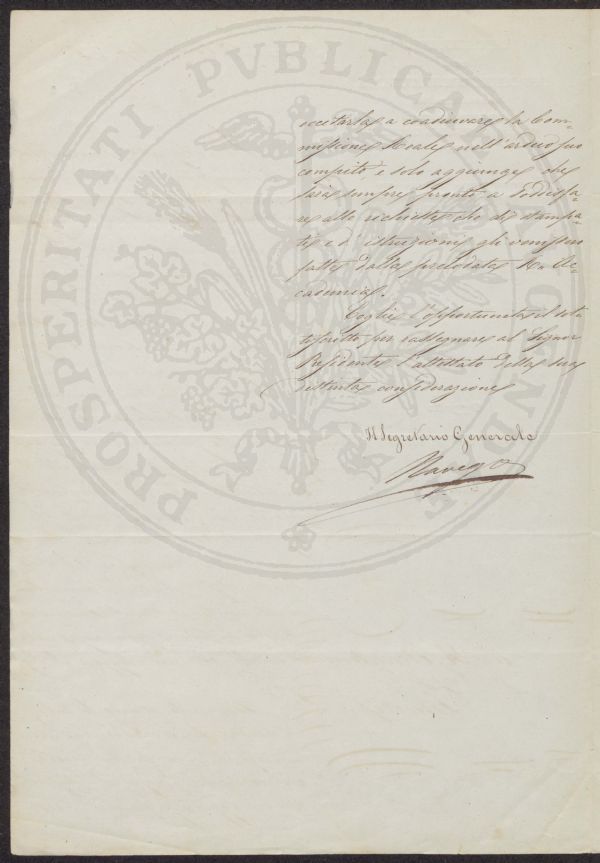 PROSPERITATI PVBLICAE AVGENDAE
eccitarla a coadiuvare la Com-
missione Reale nell'arduo suo
compito e solo aggiunge che
sarà sempre pronto a soddisfa-
re alle richieste che di stampa-
ti e d'istruzioni gli venissero
fatte dalla prelodata R. Ac-
cademia.
Coglie l'opportunità il sot-
toscritto per rassegnare al Signor
Presidente l'attestato della sua
distinta considerazione
Il Segretario Generale